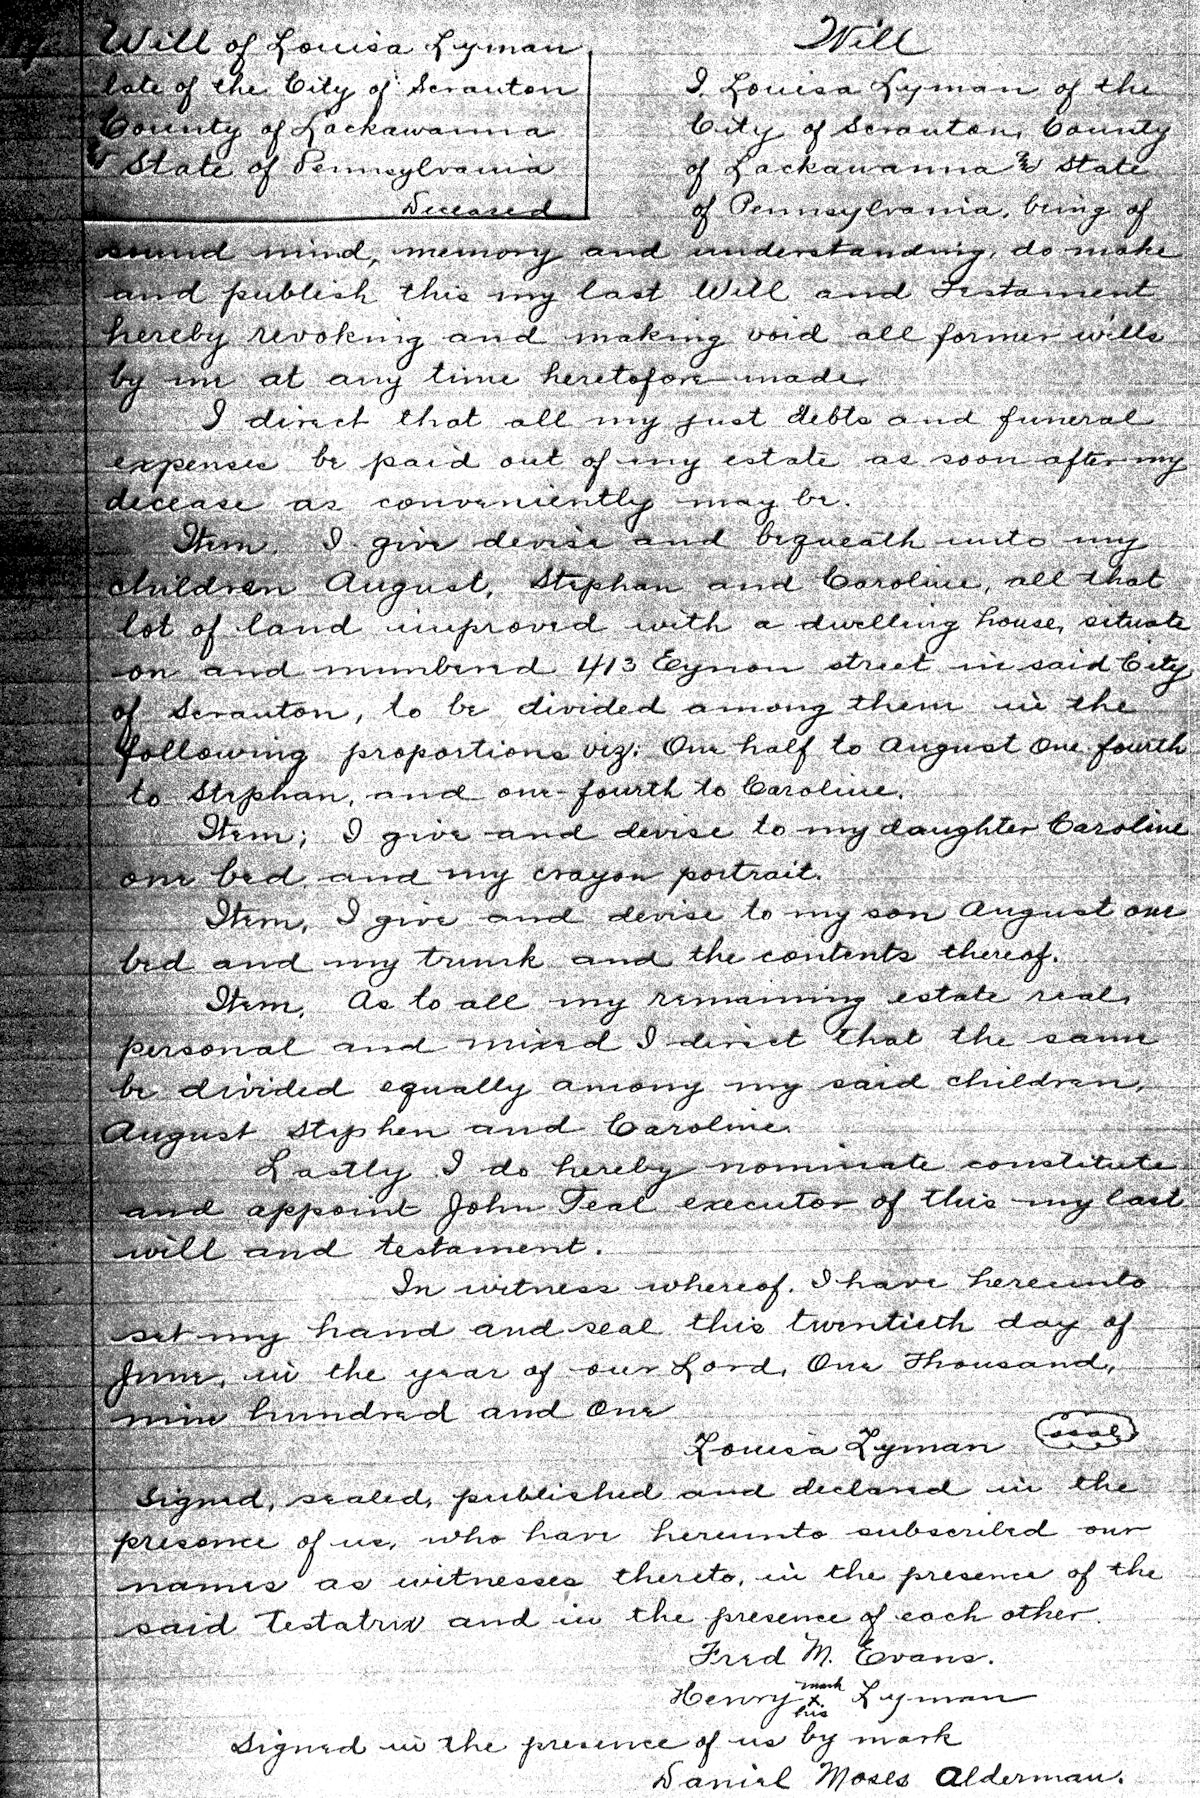 Will of Louisa Lyman
late of the City of Scranton
County of Lackawanna
& State of Pennsylvania
Deceased
Will
I, Louisa Lyman of the
City of Scranton, County
of Lackawanna & State
of Pennsylvania, being of
sound mind, memory and understanding, do make
and publish this my last Will and Testament
hereby revoking and making void all former wills
by me at any time heretofore made.
I direct that all my just debts and funeral
expenses be paid out of my estate as soon after my
decease as conveniently may be.
Item. I give devise and bequeath unto my
children August, Stephan and Caroline, all that
lot of land improved with a dwelling house, situate
on and numbered 413 Eynon street in said City
of Scranton, to be divided among them in the
following proportions viz: One half to August One fourth
to Stephan, and one-fourth to Caroline.
Item; I give and devise to my daughter Caroline
one bed and my crayon portrait.
Item, I give and devise to my son August one
bed and my trunk and the contents thereof.
Item, As to all my remaining estate real,
personal and mixed I direct that the same
be divided equally among my said children,
August Stephen and Caroline.
Lastly I do hereby nominate constitute
and appoint John Teal executor of this my last
will and testament.
In witness whereof, I have hereunto
set my hand and seal this twentieth day of
June, in the year of our Lord, One Thousand,
nine hundred and One
Louisa Lyman seal
Signed, sealed, published and declared in the
presence of us, who have hereunto subscribed our
names as witnesses thereto, in the presence of the
said Testatrix and in the presence of each other.
Fred M. Evans.
Henry his x mark Lyman
Signed in the presence of us by mark
Daniel Moses Alderman.